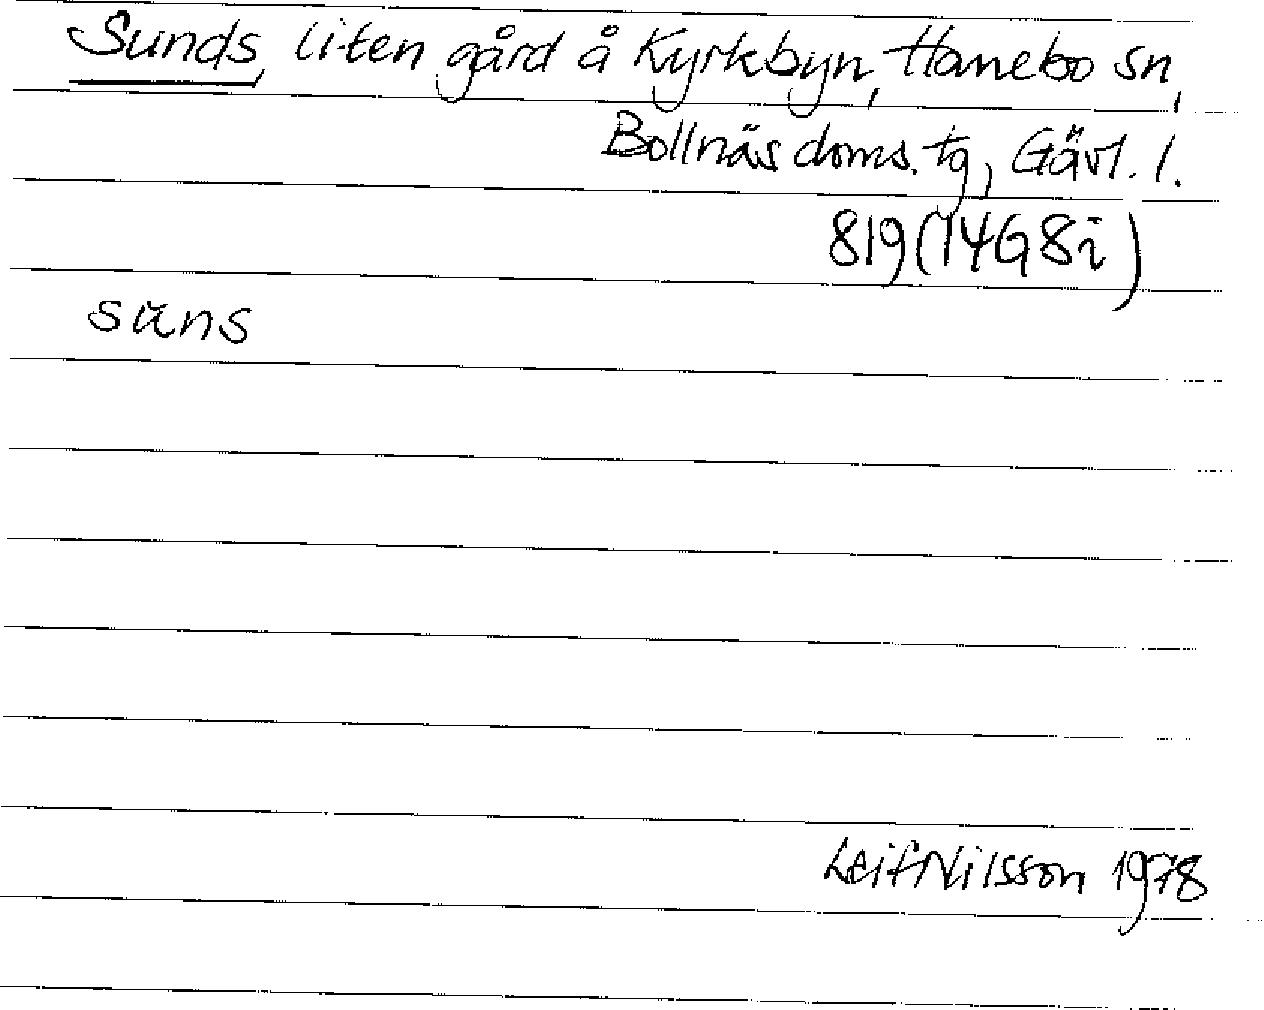 Sunds, liten gård å Kyrkbyn, Hanebo sn,
Bollnäs doms. tg, Gävl. l.
819 (14G8i)
suns
Leif Nilsson 1978